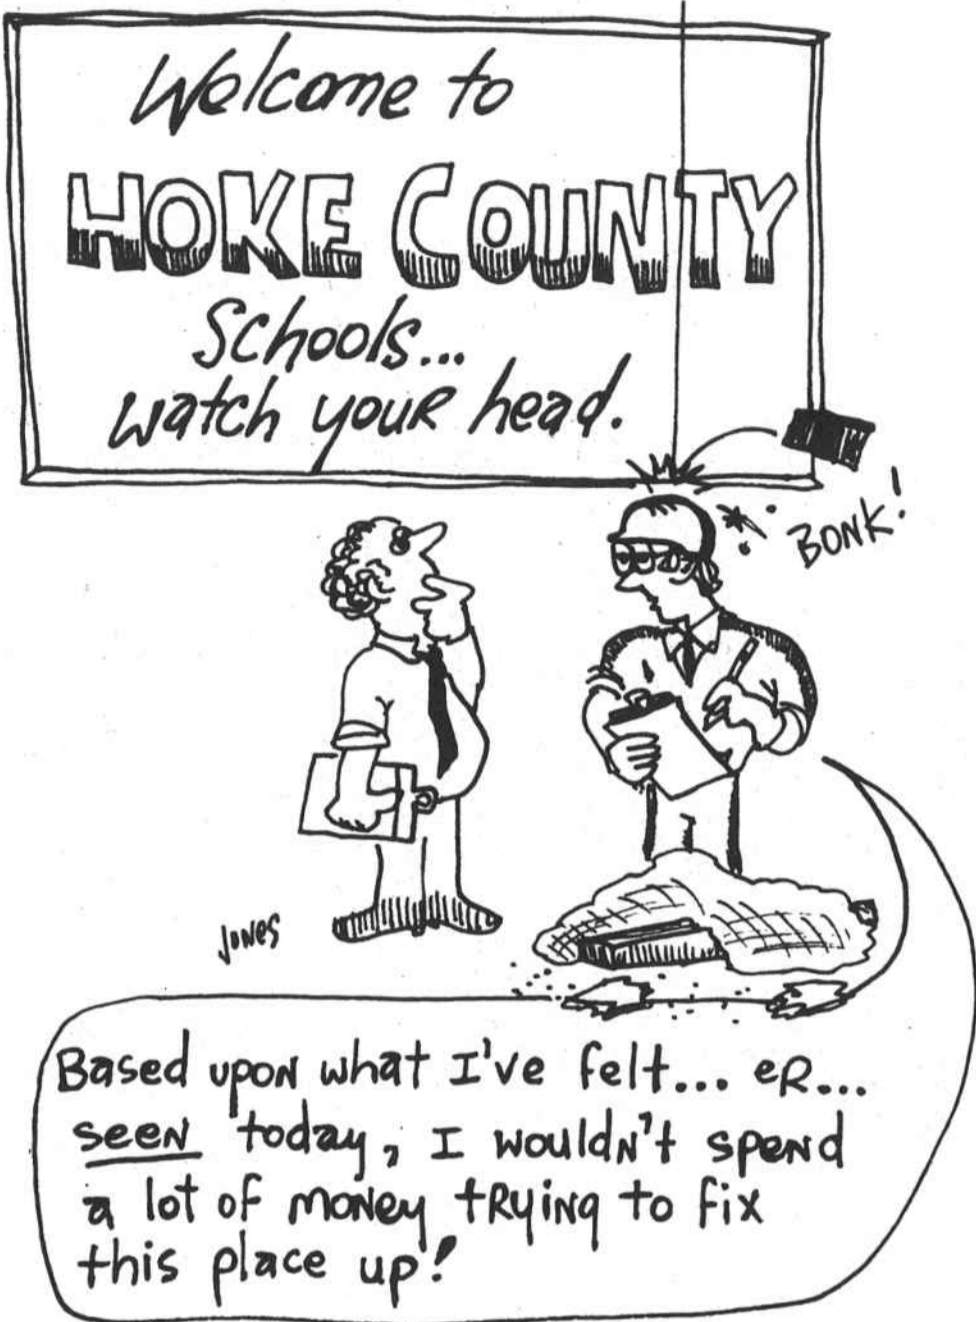 Welcome to
HOKE COUNTY
Schools...
watch your head.
BONK!
JONES
Based upon what I've felt... er...
seen today, I wouldn't spend
a lot of money trying to fix
this place up!